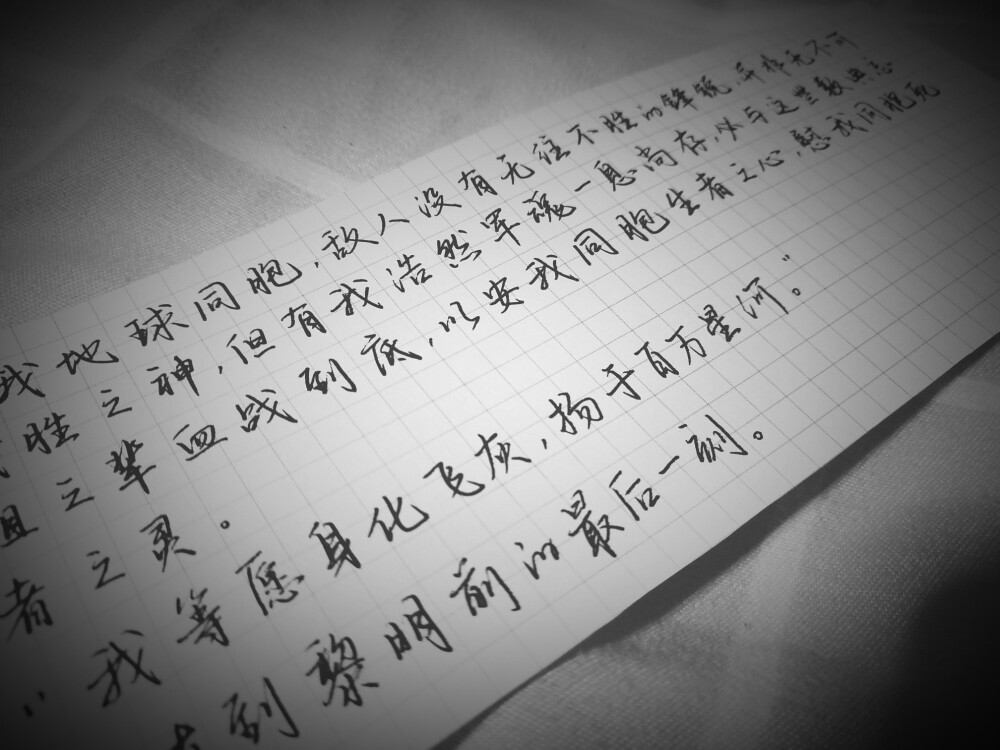 我地球同胞,敌人没有无往不胜的锋锐,并非无不可
胜之神,但有我浩然军魂一息尚存,必与这些数典忘
之辈血战到底,以安我同胞生者之心,慰我同胞死
者之灵。
“我等愿身化飞灰,扬于百万星河。”
到黎明前的最后一刻。